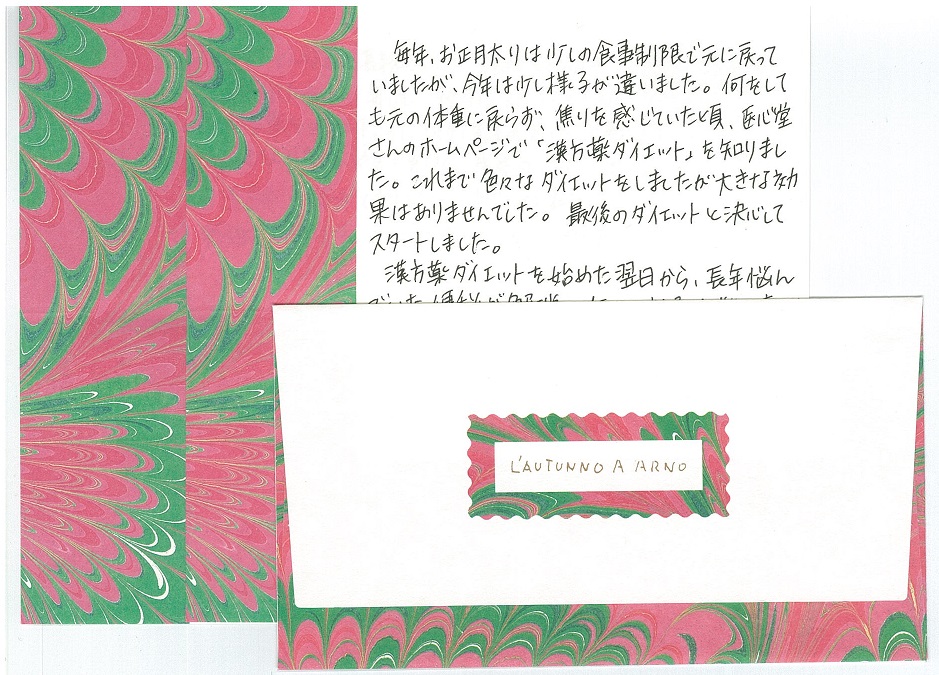 毎年、お正月太りは少しの食事制限で元に戻って
いましたが、今年は少し様子が違いました。何をして
も元の体重に戻らず、焦りを感じていた頃、匠心堂
さんのホームページで「漢方薬ダイエット」を知りまし
た。これまで色々なダイエットをしましたが大きな効
果はありませんでした。最後のダイエットと決心して
スタートしました。
漢方薬ダイエットを始めた翌日から、長年悩ん
L'AUTUNNO A ARNO